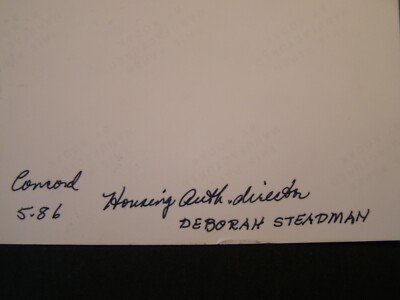 Concord
5-86
Housing Auth. director
DEBORAH STEADMAN